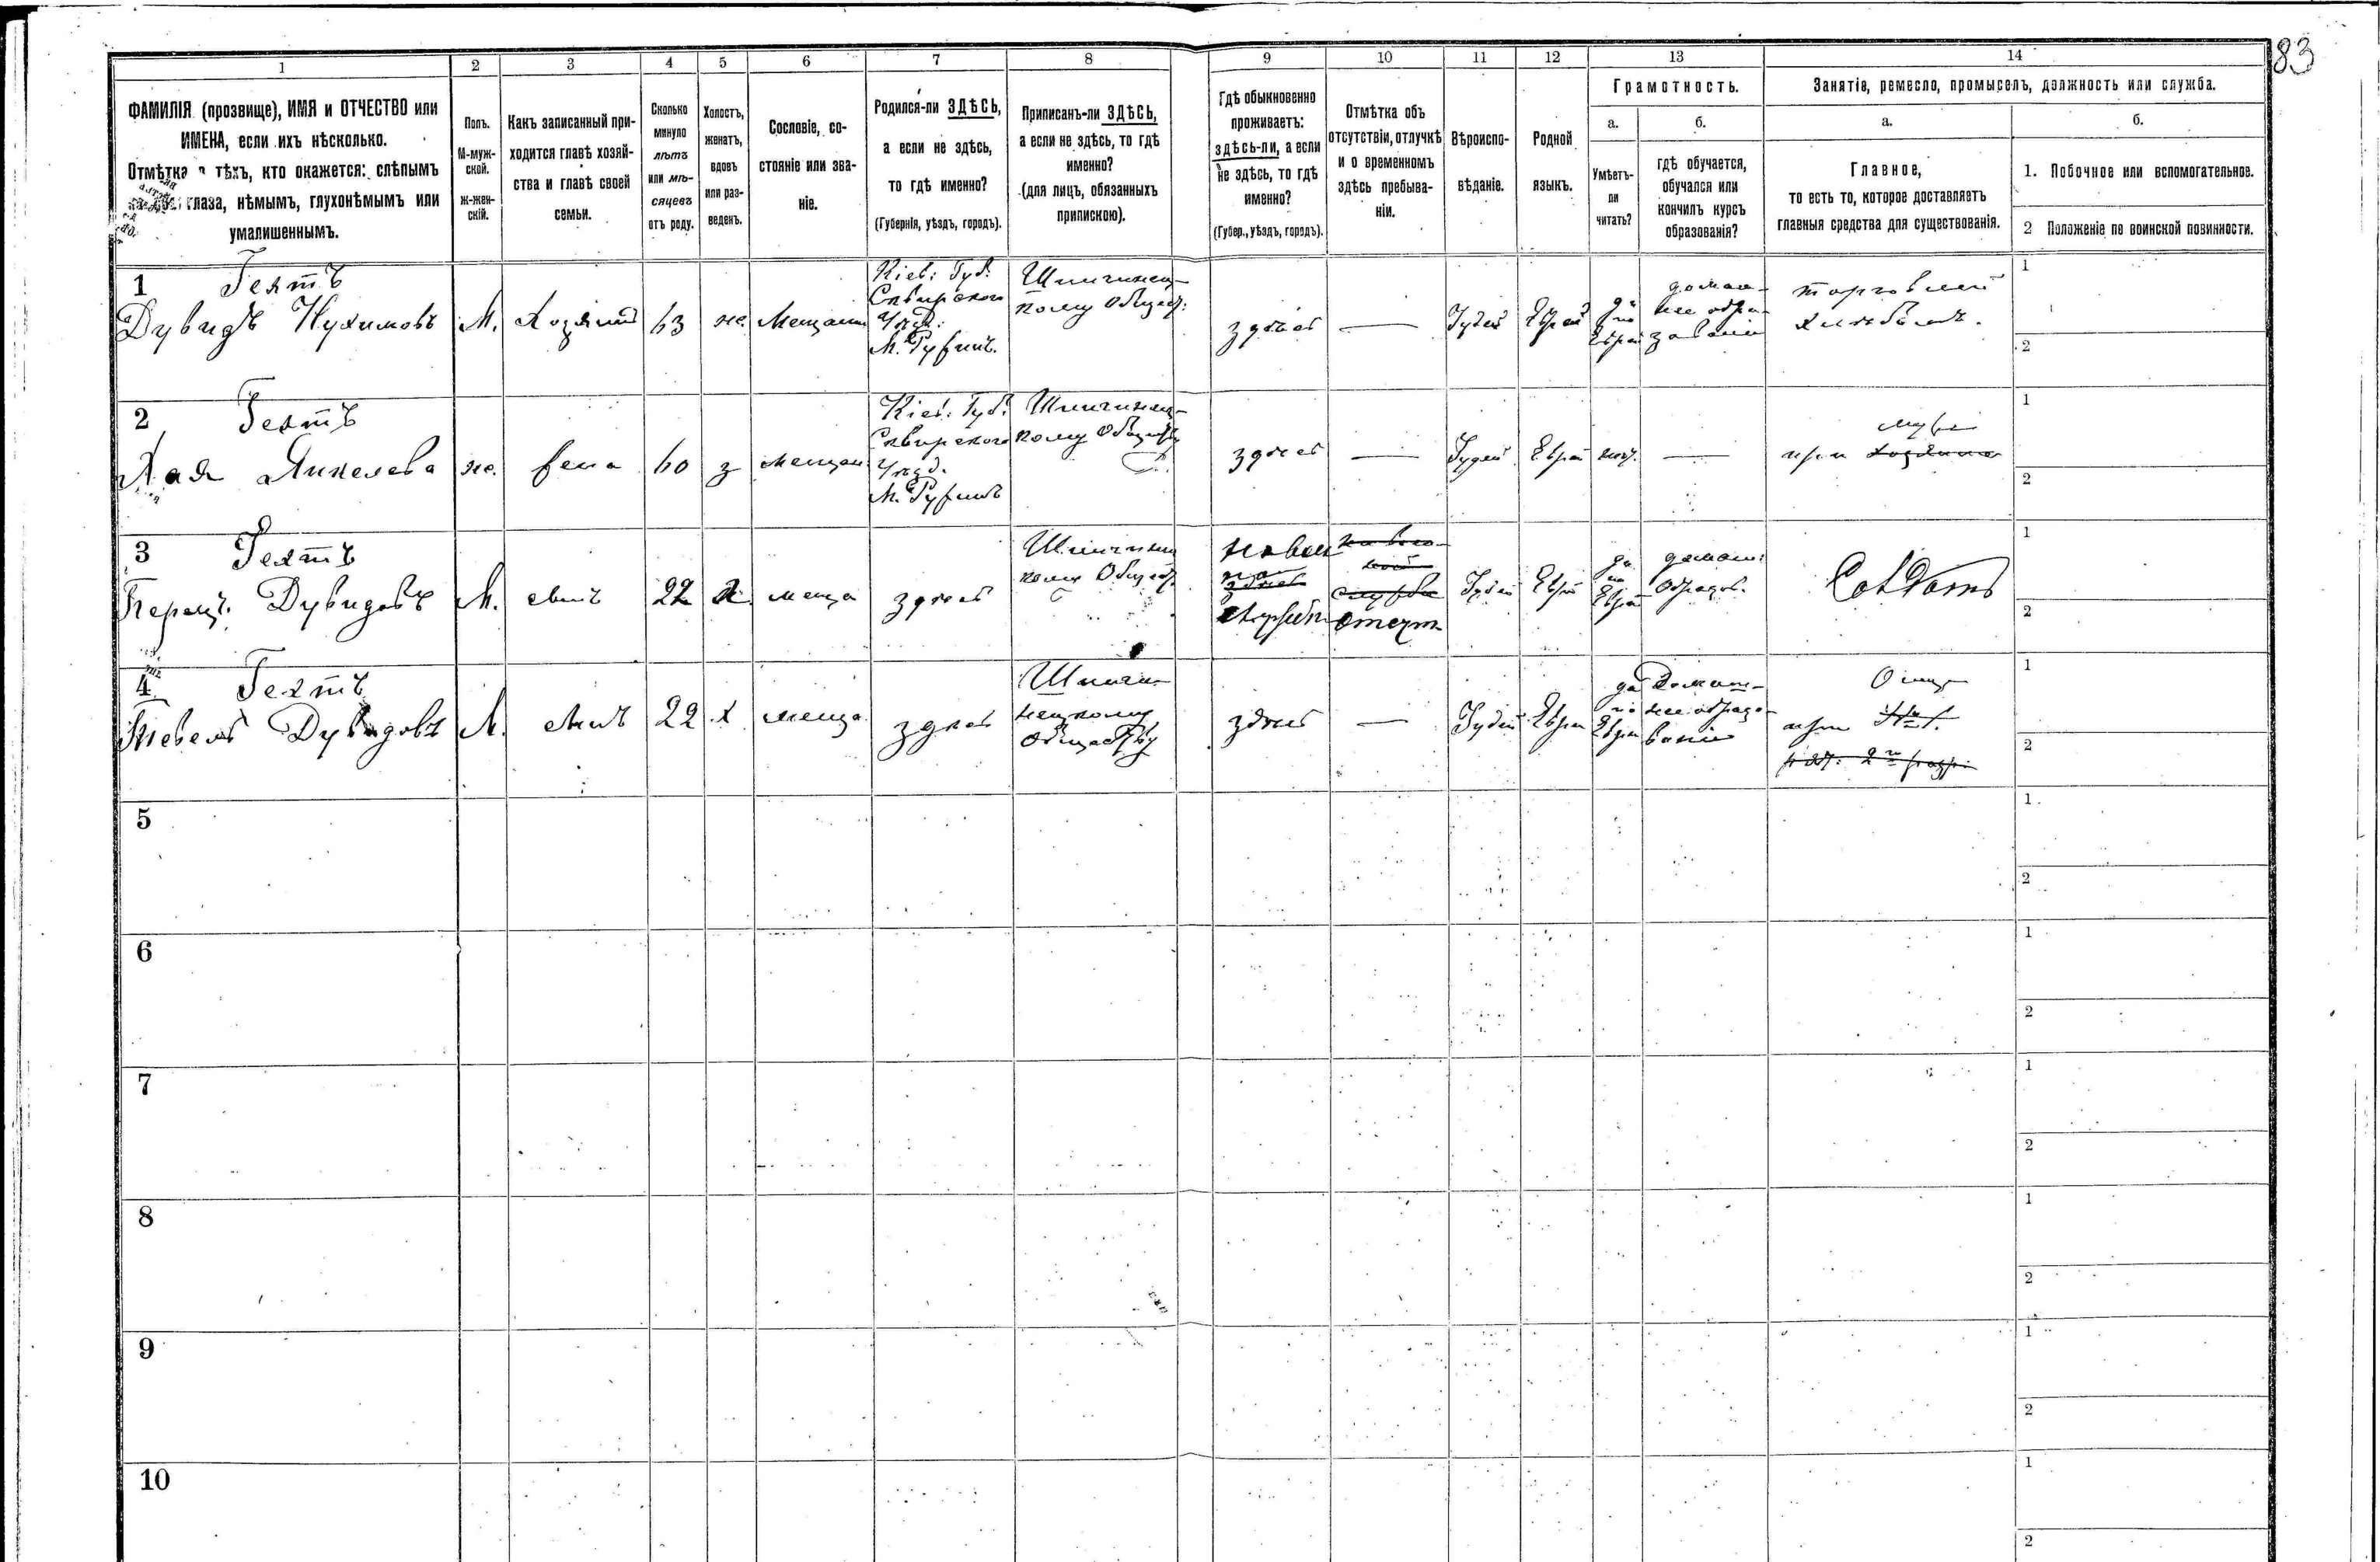 83
1 2 3 4 5 6 7 8 9 10 11 12 13 14
ФАМИЛІЯ (прозвище), ИМЯ и ОТЧЕСТВО или
ИМЕНА, если ихъ нѣсколько.
Отмѣтка о тѣхъ, кто окажется: слѣпымъ
глаза, нѣмымъ, глухонѣмымъ или
умалишеннымъ.
Полъ.
М-муж-
ской.
ж-жен-
скій.
Какъ записанный при-
ходится главѣ хозяй-
ства и главѣ своей
семьи.
Сколько
минуло
лѣтъ
или мѣ-
сяцевъ
отъ роду.
Холостъ,
женатъ,
вдовъ
или раз-
веденъ.
Сословіе, со-
стояніе или зва-
ніе.
Родился-ли ЗДѢСЬ,
а если не здѣсь,
то гдѣ именно?
(Губернія, уѣздъ, городъ).
Приписанъ-ли ЗДѢСЬ,
а если не здѣсь, то гдѣ
именно?
(для лицъ, обязанныхъ
припискою).
Гдѣ обыкновенно
проживаетъ:
здѣсь-ли, а если
не здѣсь, то гдѣ
именно?
(Губер., уѣздъ, городъ).
Отмѣтка объ
отсутствіи, отлучкѣ
и о временномъ
здѣсь пребыва-
ніи.
Вѣроиспо-
вѣданіе.
Родной
языкъ.
Грамотность.
а.
Умѣетъ-
ли
читать?
б.
гдѣ обучается,
обучался или
кончилъ курсъ
образованія?
Занятіе, ремесло, промыселъ, должность или служба.
а.
Главное,
то есть то, которое доставляетъ
главныя средства для существованія.
б.
1. Побочное или вспомогательное.
2 Положеніе по воинской повинности.
1 Гехтъ
Дувидъ Нухимовъ
М.
Хозяинъ
63
же.
Мещанин
Кіев: Губ:
Сквирскаго
Уѣзд:
М. Ружинъ.
Шпичинец-
кому Общест:
здѣсь
—
Іудей
Еврей
да
по
Еврей
домаш-
нее обра-
зованіе
торговлей
хлѣбомъ.
1
2
2 Гехтъ
Хая Янкелева
же.
жена
60
з
мещан
Кіев: Губ:
Сквирскаго
Уѣзд.
М. Ружинъ
Шпичинец-
кому Обществу
здѣсь
—
Іудей
Еврей
нѣт.
—
мужѣ
при хозяинѣ
1
2
3 Гехтъ
Перецъ Дувидовъ
М.
сынъ
22
х
меща
здѣсь
Шпичинец
кому Общест
здѣсь
службѣ
отсут
Іудей
Еврей
да
по
Еврей
домаш:
образов.
Солдатъ
1
2
4 Гехтъ
Тевель Дувидовъ
М.
сынъ
22
х
меща
здѣсь
Шпичи-
нецкому
Обществу
здѣсь
—
Іудей
Еврей
да
по
Еврей
Домаш-
нее образо-
ваніе
при
1
2
5
1
2
6
1
2
7
1
2
8
1
2
9
1
2
10
1
2